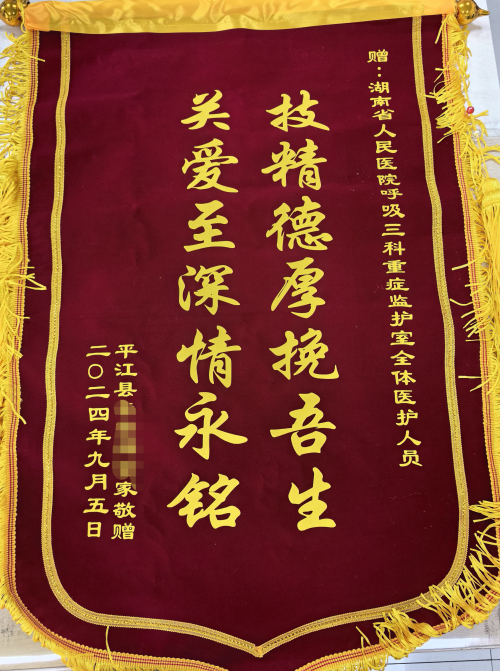 赠：湖南省人民医院呼吸三科重症监护室全体医护人员
技精德厚挽吾生
关爱至深情永铭
平江县家敬赠
二〇二四年九月五日